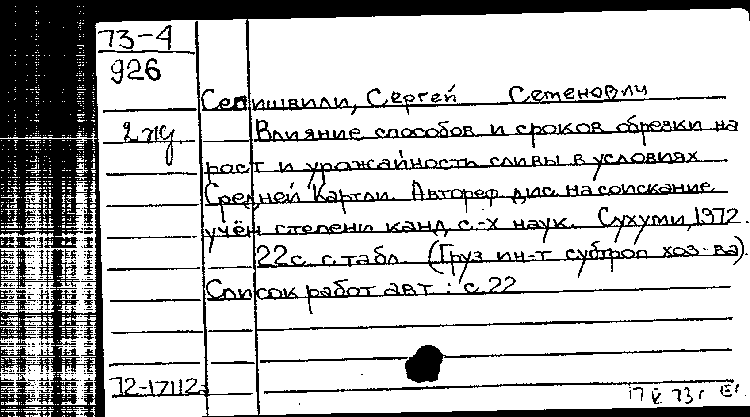 73-4
926
Сепишвили, Сергей Семенович
2 Влияние способов и сроков обрезки на
рост и урожайность сливы в условиях
Средней Картли. Автореф дис. на соискание
учён степени канд с.-х наук. Сухуми, 1972.
22с. с табл. (Груз ин-т субтроп хоз-ва).
Список работ авт: с. 22
72-17112
17 V 73г